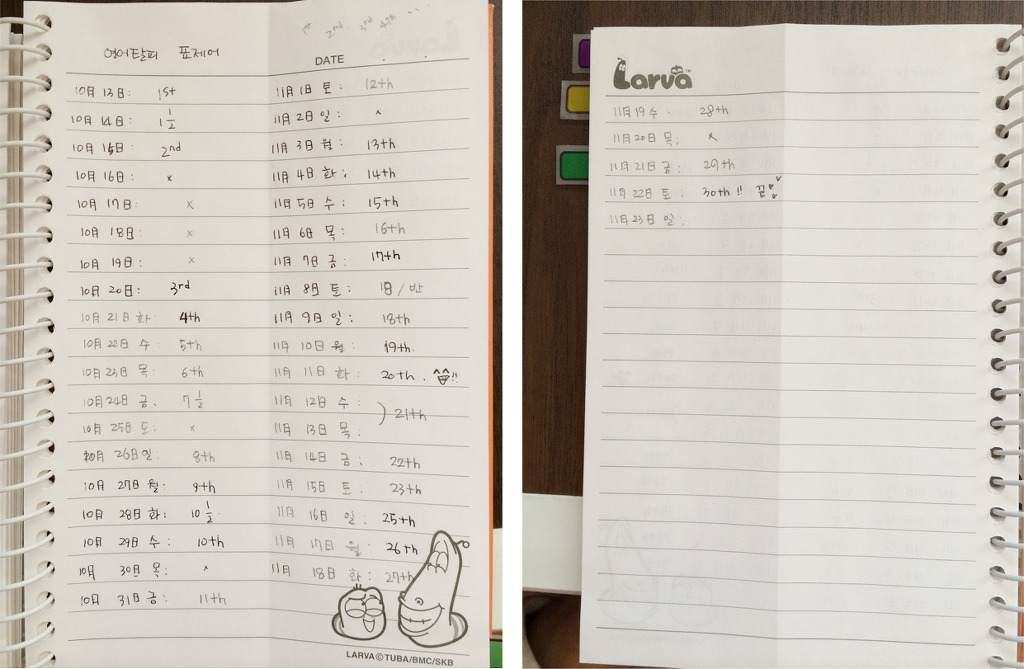 1st 2nd 3rd 4th
영어탈피 표제어
DATE
10月 13日: 1st
10月 14日: 1 1/2
10月 15日: 2nd
10月 16日: x
10月 17日: x
10月 18日: x
10月 19日: x
10月 20日: 3rd
10月 21日 화: 4th
10月 22日 수: 5th
10月 23日 목: 6th
10月 24日 금: 7 1/2
10月 25日 토: x
10月 26日 일: 8th
10月 27日 월: 9th
10月 28日 화: 10 1/2
10月 29日 수: 10th
10月 30日 목: x
10月 31日 금: 11th
11月 1日 토: 12th
11月 2日 일: x
11月 3日 월: 13th
11月 4日 화: 14th
11月 5日 수: 15th
11月 6日 목: 16th
11月 7日 금: 17th
11月 8日 토: 18/반
11月 9日 일: 18th
11月 10日 월: 19th
11月 11日 화: 20th. !!
11月 12日 수: ) 21th
11月 13日 목:
11月 14日 금: 22th
11月 15日 토: 23th
11月 16日 일: 25th
11月 17日 월: 26th
11月 18日 화: 27th
LARVA©TUBA/BMC/SKB
Larva™
11月 19 수: 28th
11月 20日 목: x
11月 21日 금: 29th
11月 22日 토: 30th!! 끝!!
11月 23日 일: